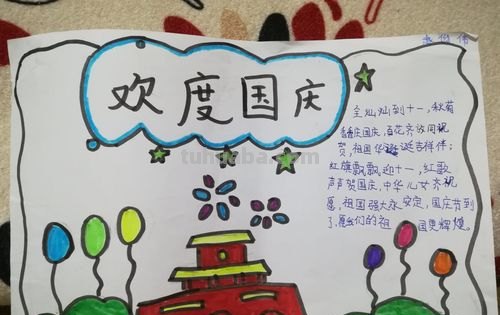 欢度国庆
金灿灿到十一,秋菊
香香庆国庆,百花齐放同祝
贺,祖国华诞诞吉祥伴;
红旗飘飘迎十一,红歌
声声贺国庆,中华儿女齐祝
愿,祖国强大永安定,国庆节到
了,愿我们的祖国更辉煌。
tunbaba.com